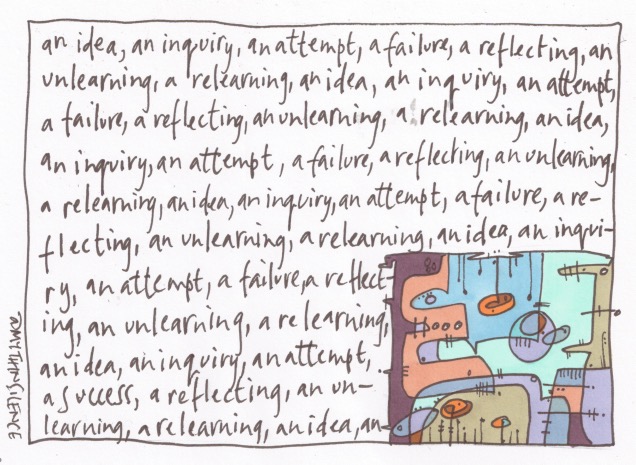 an idea, an inquiry, an attempt, a failure, a reflecting, an
unlearning, a relearning, an idea, an inquiry, an attempt,
a failure, a reflecting, an unlearning, a relearning, an idea,
an inquiry, an attempt, a failure, a reflecting, an unlearning,
a relearning, an idea, an inquiry, an attempt, a failure, a re-
flecting, an unlearning, a relearning, an idea, an inqui-
ry, an attempt, a failure, a reflect-
ing, an unlearning, a relearning,
an idea, an inquiry, an attempt,
a success, a reflecting, an un-
learning, a relearning, an idea, an